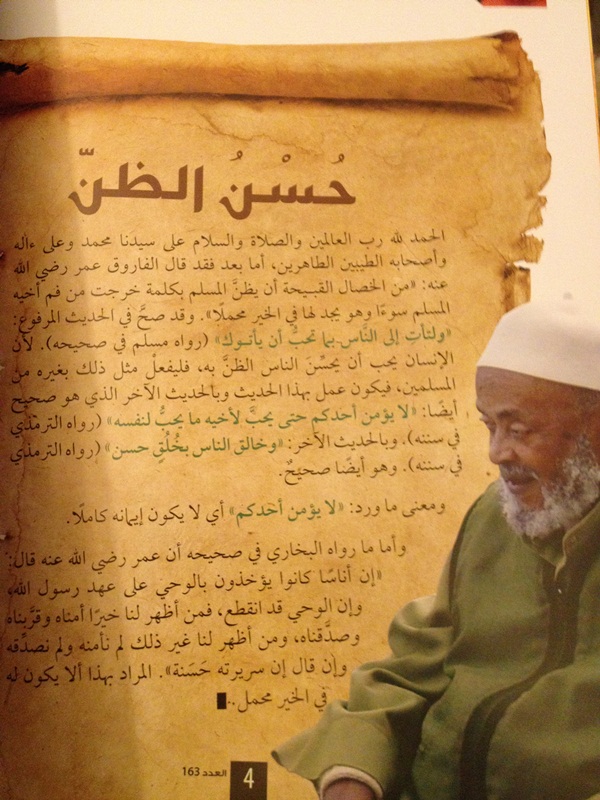 حُسْنُ الظنّ
الحمد لله رب العالمين والصلاة والسلام على سيدنا محمد وعلى ءاله
وأصحابه الطيبين الطاهرين، أما بعد فقد قال الفاروق عمر رضي الله
عنه: «من الخصال القبيحة أن يظنَّ المسلم بكلمة خرجت من فم أخيه
المسلم سوءًا وهو يجد لها في الخير محملًا». وقد صحَّ في الحديث المرفوع:
«ولتأتِ إلى النَّاس بما تحبُّ أن يأتوك» (رواه مسلم في صحيحه). لأن
الإنسان يحب أن يحسِّنَ الناس الظنَّ به، فليفعل مثل ذلك بغيره من
المسلمين، فيكون عمل بهذا الحديث وبالحديث الآخر الذي هو صحيح
أيضًا: «لا يؤمن أحدكم حتى يحبَّ لأخيه ما يحبُّ لنفسه» (رواه الترمذي
في سننه). وبالحديث الآخر: «وخالق الناس بخُلُقٍ حسن» (رواه الترمذي
في سننه). وهو أيضًا صحيحٌ.
ومعنى ما ورد: «لا يؤمن أحدكم» أي لا يكون إيمانه كاملًا.
وأما ما رواه البخاري في صحيحه أن عمر رضي الله عنه قال:
«إن أناسًا كانوا يؤخذون بالوحي على عهد رسول الله،
وإن الوحي قد انقطع، فمن أظهر لنا خيرًا أمناه وقرَّبناه
وصدَّقناه، ومن أظهر لنا غير ذلك لم نأمنه ولم نصدِّقه
وإن قال إن سريرته حَسَنة». المراد بهذا ألا يكون له
في الخير محمل..
4 العدد 163